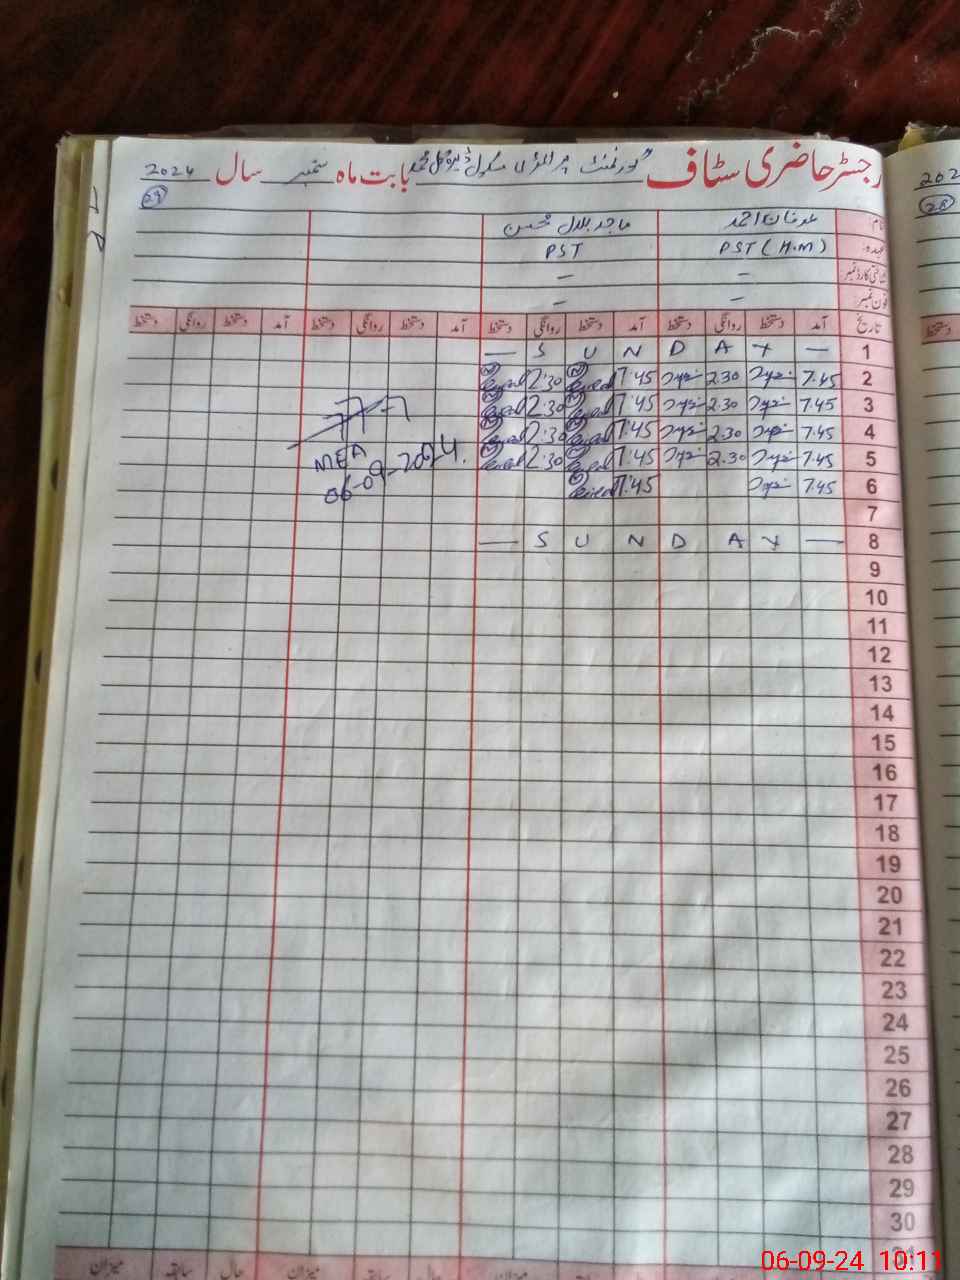 رجسٹر حاضری سٹاف گورنمنٹ پرائمری سکول بابت ماہ ستمبر سال 2024
29
28
نام: عرفان احمد ماجد بلال محسن
عہدہ: PST (H.M) PST
شناختی کارڈ نمبر — —
فون نمبر: — —
تاریخ آمد دستخط روانگی دستخط آمد دستخط روانگی دستخط آمد دستخط روانگی دستخط آمد دستخط روانگی دستخط
1 — S U N D A Y —
2 7.45 2.30 7:45 2:30
3 7.45 2.30 7:45 2:30
4 7.45 2.30 7:45 2:30
5 7.45 2.30 7:45 2:30
6 7.45 7:45
MEA
06-09-2024.
7
8 — S U N D A Y —
9
10
11
12
13
14
15
16
17
18
19
20
21
22
23
24
25
26
27
28
29
30
31
میزان سابقہ حال میزان سابقہ حال میزان
06-09-24 10:11